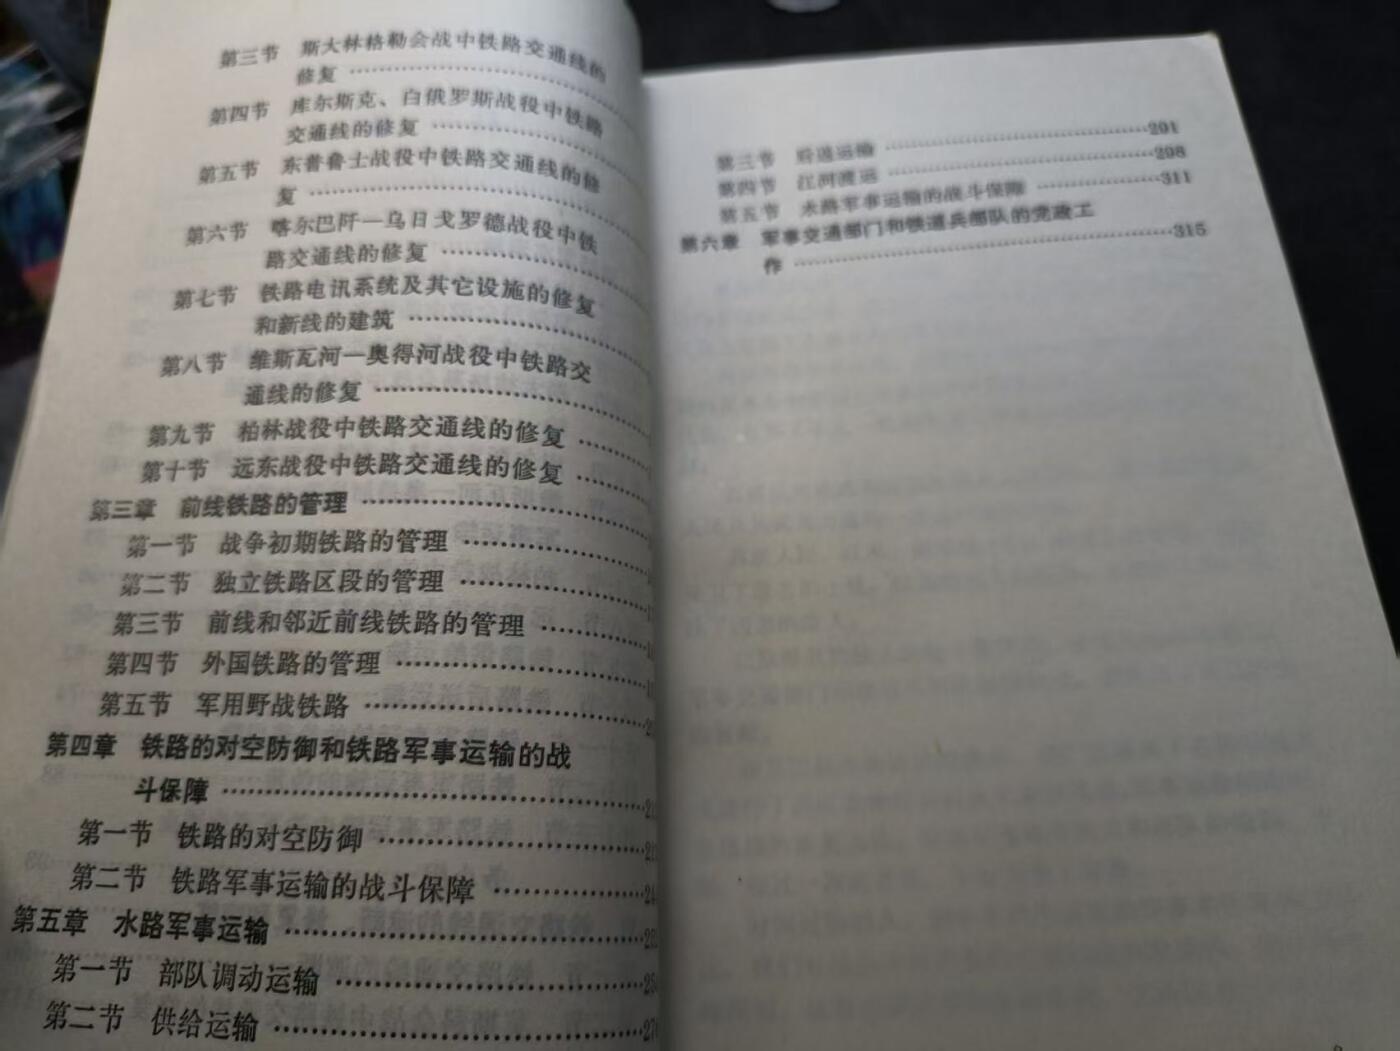 第三节 斯大林格勒会战中铁路交通线的
修复 ……………………
第四节 库尔斯克、白俄罗斯战役中铁路
交通线的修复 ……………………
第五节 东普鲁士战役中铁路交通线的修
复 ……………………
第六节 喀尔巴阡—乌日戈罗德战役中铁
路交通线的修复 ……………………
第七节 铁路电讯系统及其它设施的修复
和新线的建筑 ……………………
第八节 维斯瓦河—奥得河战役中铁路交
通线的修复 ……………………
第九节 柏林战役中铁路交通线的修复 ……
第十节 远东战役中铁路交通线的修复 ……
第三章 前线铁路的管理 ……………………
第一节 战争初期铁路的管理 ……………………
第二节 独立铁路区段的管理 ……………………
第三节 前线和邻近前线铁路的管理 …………
第四节 外国铁路的管理 ……………………
第五节 军用野战铁路 ……………………
第四章 铁路的对空防御和铁路军事运输的战
斗保障 ……………………
第一节 铁路的对空防御 ……………………
第二节 铁路军事运输的战斗保障 ……………
第五章 水路军事运输 ……………………
第一节 部队调动运输 ……………………
第二节 供给运输 ……………………
第三节 后送运输 ……………………291
第四节 江河渡运 ……………………298
第五节 水路军事运输的战斗保障 …………311
第六章 军事交通部门和铁道兵部队的党政工
作 ……………………315